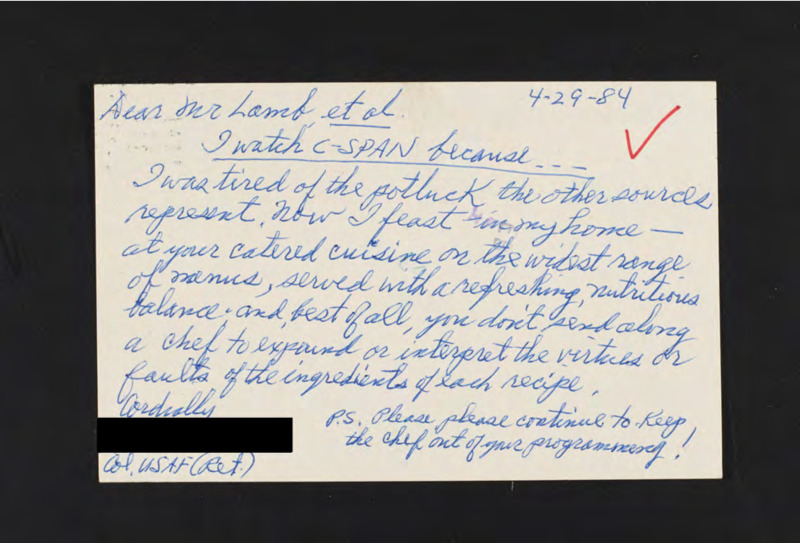 4-29-84
Dear Mr Lamb, et al.
I watch C-SPAN because....
I was tired of the potluck the other sources
represent. Now I feast in my home —
at your catered cuisine on the widest range
of menus, served with a refreshing, nutritious
balance; and, best of all, you don't send along
a chef to expound or interpret the virtues or
faults of the ingredients of each recipe.
Cordially
Col. USAF (Ret.)
P.S. Please please continue to keep
the chef out of your programming!